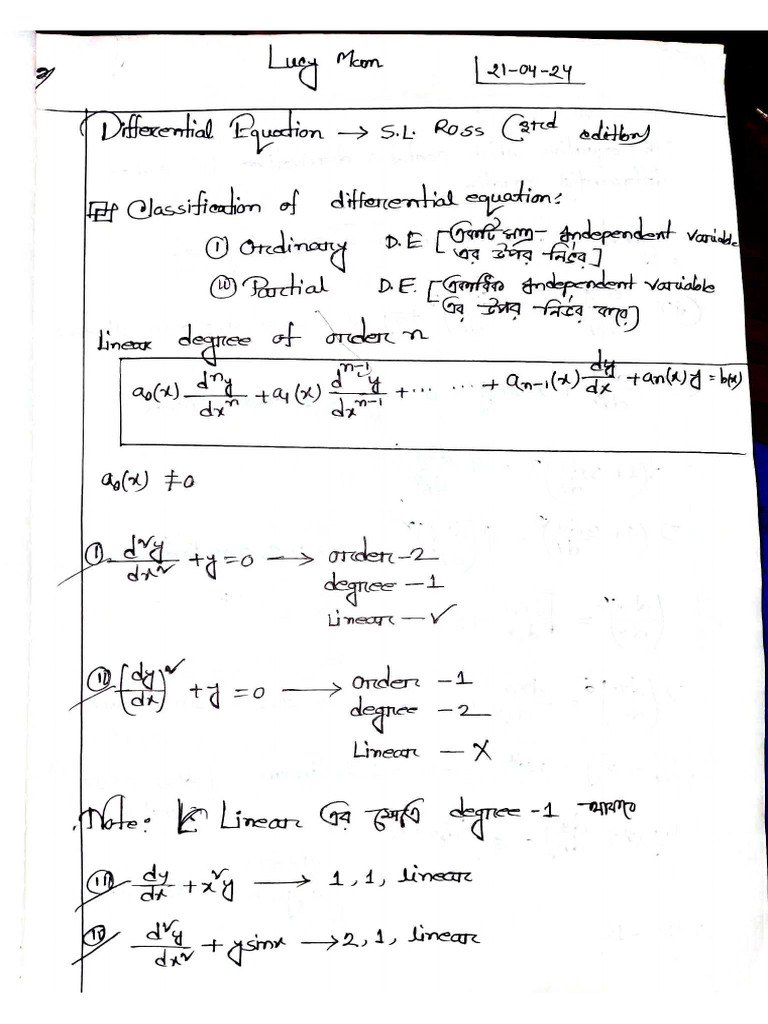 Lucy Mam
21-04-24
Differential Equation → S.L. Ross (3rd edition)
Classification of differential equation:
(i) Ordinary D.E [একটি মাত্র independent variable
এর উপর নির্ভর]
(ii) Partial D.E. [একাধিক independent variable
এর উপর নির্ভর করে]
Linear degree of order n
a₀(x) dⁿy/dxⁿ + a₁(x) dⁿ⁻¹y/dxⁿ⁻¹ + ... ... + aₙ₋₁(x) dy/dx + an(x) y = b(x)
a₀(x) ≠ 0
(i) d²y/dx² + y = 0 → order - 2
degree - 1
Linear - ✓
(ii) (dy/dx)² + y = 0 → order - 1
degree - 2
Linear - X
Note: Linear এর ক্ষেত্রে degree - 1 থাকবে
(iii) dy/dx + x²y → 1, 1, linear
(iv) d²y/dx² + y sinx → 2, 1, linear